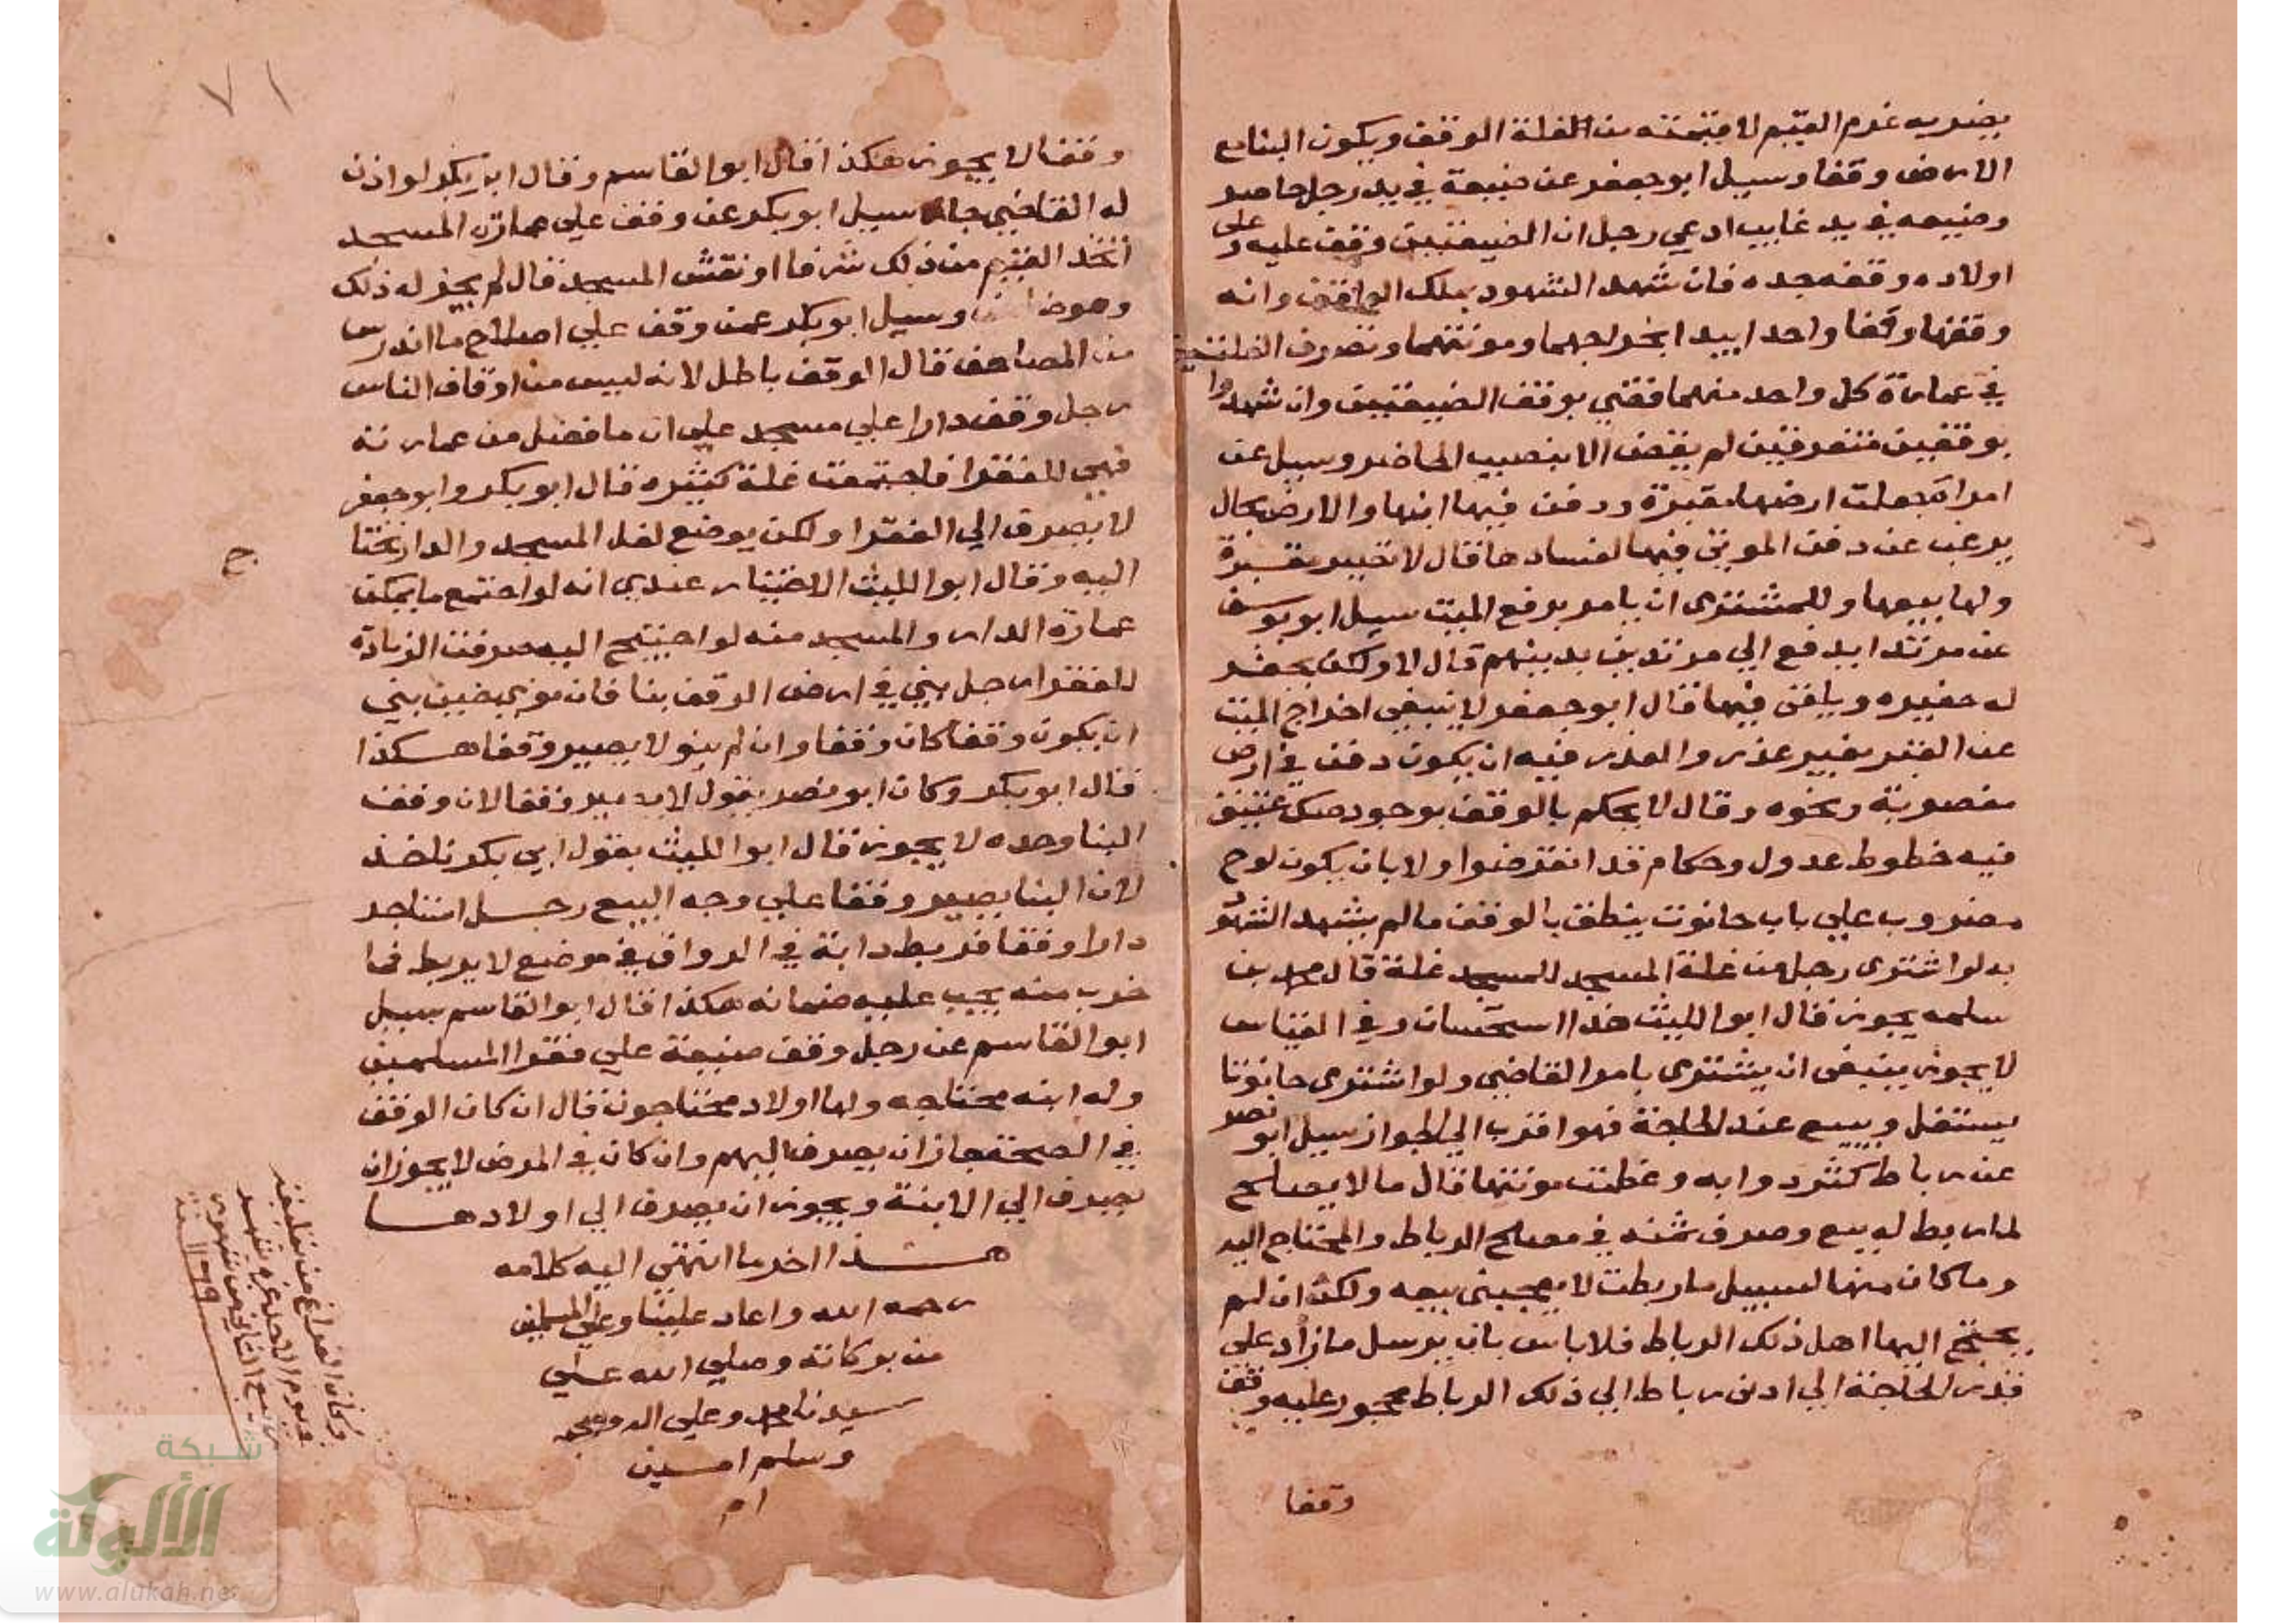 يضر به غرم القيم لا قيمته من الغلة الوقف ويكون البنا مع
الارض وقفا وسيل ابو جعفر عن ضيعة في يد رجل حاضر
وضيعه في يد غايب ادعي رجل ان الضيعتين وقف عليه وعلى
اولاده وقفه جده فان شهد الشهود بملك الواقف وانه
وقفها وقفا واحدا يبدا بخراجهما ومونتهما وتصرف الغلة
في عمارة كل واحد منهما فقضي بوقف الضيعتين وان شهدوا
بوقفين متفرقين لم يقض الا بنصيب الحاضر وسيل عن
امراة جعلت ارضها مقبرة ودفن فيها ابنها والارض بحال
يرغب عن دفن الموتي فيها لفسادها قال لا تصير مقبرة
ولها بيعها وللمشتري ان يامر برفع الميت سيل ابو يوسف
عن مرتد ايدفع الي مرتدين بدينهم قال لا ولكن يحفر
له حفيره ويلقي فيها قال ابو جعفر لا ينبغي اخراج الميت
عن القبر بغير عذر والعذر فيه ان يكون دفن في ارض
مغصوبة ونحوه وقال لا يحكم بالوقف بوجود صك عتيق
فيه خطوط عدول وحكام قد انقرضوا ولا بان يكون لوح
مضروب علي باب حانوت ينطق بالوقف ما لم يشهد الشهود
به لو اشترى رجل من غلة المسجد للمسجد غلة قال محمد بن
سلمه يجوز قال ابو الليث هذا استحسان وفي القياس
لا يجوز ينبغي ان يشترى بامر القاضي ولو اشترى حانوتا
يستغل ويبيع عند الحاجة فهو اقرب الي الجواز سيل ابو نصر
عن رباط كثر دوابه وعظمت مونتها قال ما لا يصلح
لما ربط له يبيع وصرف ثمنه في مصالح الرباط والمحتاج اليه
وما كان منها لسبيل ما ربطت لا يعجبني بيعه ولكن ان لم
يحتج اليها اهل ذلك الرباط فلا باس بان يرسل ما زاد على
قدر الحاجة الي ادنى رباط الي ذلك الرباط محجور عليه وقف
وقفا
٧١
وقفا لا يجوز هكذا قال ابو القاسم وقال ابو بكر لو اذن
له القاضي جاز سيل ابو بكر عن وقف علي عمارة المسجد
اتخذ القيم من ذلك شرفا او نقش المسجد قال لم يجز له ذلك
وهو ضامن وسيل ابو بكر عمن وقف علي اصلاح ما اندرس
من المصاحف قال الوقف باطل لانه ليس من اوقاف الناس
رجل وقف دارا علي مسجد علي ان ما فضل من عمارته
فهي للفقرا فاجتمعت غلة كثيره قال ابو بكر وابو جعفر
لا يصرف الي الفقرا ولكن يوضع لعل المسجد والدار يحتا
اليه وقال ابو الليث الاختيار عندي انه لو اجتمع ما يمكن
عمارة الدار والمسجد منه لو احتيج اليه صرفت الزيادة
للفقرا رجل يبني في ارض الوقف بنا فان نوى حين بني
ان يكون وقفا كان وقفا وان لم ينو لا يصير وقفا هكذا
قال ابو بكر وكان ابو نصر يقول لا يصير وقفا لان وقف
البنا وحده لا يجوز قال ابو الليث بقول ابي بكر ناخذ
لان البنا يصير وقفا علي وجه البيع رجل استاجر
دارا وقفا فربط دابة في الرواق في موضع لا يربط فما
خرب منه يجب عليه ضمانه هكذا قال ابو القاسم سيل
ابو القاسم عن رجل وقف ضيعة علي فقرا المسلمين
وله ابنه محتاجه ولها اولاد محتاجون قال ان كان الوقف
في الصحة جاز ان يصرف اليهم وان كان في المرض لا يجوز ان
يصرف الي الابنة ويجوز ان يصرف الي اولادها
هذا اخر ما انتهي اليه كلامه
رحمه الله واعاد علينا وعلي المسلمين
من بركاته وصلي الله علي
سيدنا محمد وعلي اله وصحبه
وسلم امين
ام
ح
وكان الفراغ من تعليقه
في يوم الاحد غرة شهر
ربيع الثاني من شهور
شبكة
الألوكة
www.alukah.net